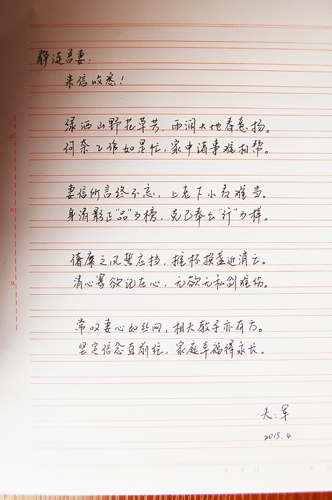 静涟吾妻：
来信收悉！
绿洒山野花草芳，雨润大地春意扬。
何奈工作如是忙，家中诸事难相帮。
妻信所言终不忘，上老下小友难当。
身清影正"品"为榜，克己奉公"行"为样。
倡廉之风誓应挡，推杯换盏近消亡。
清心寡欲记在心，无欲无私剑难伤。
常叹妻心如丝网，相夫教子亦有方。
坚定信念直前往，家庭幸福得永长。
夫：军
2015.4